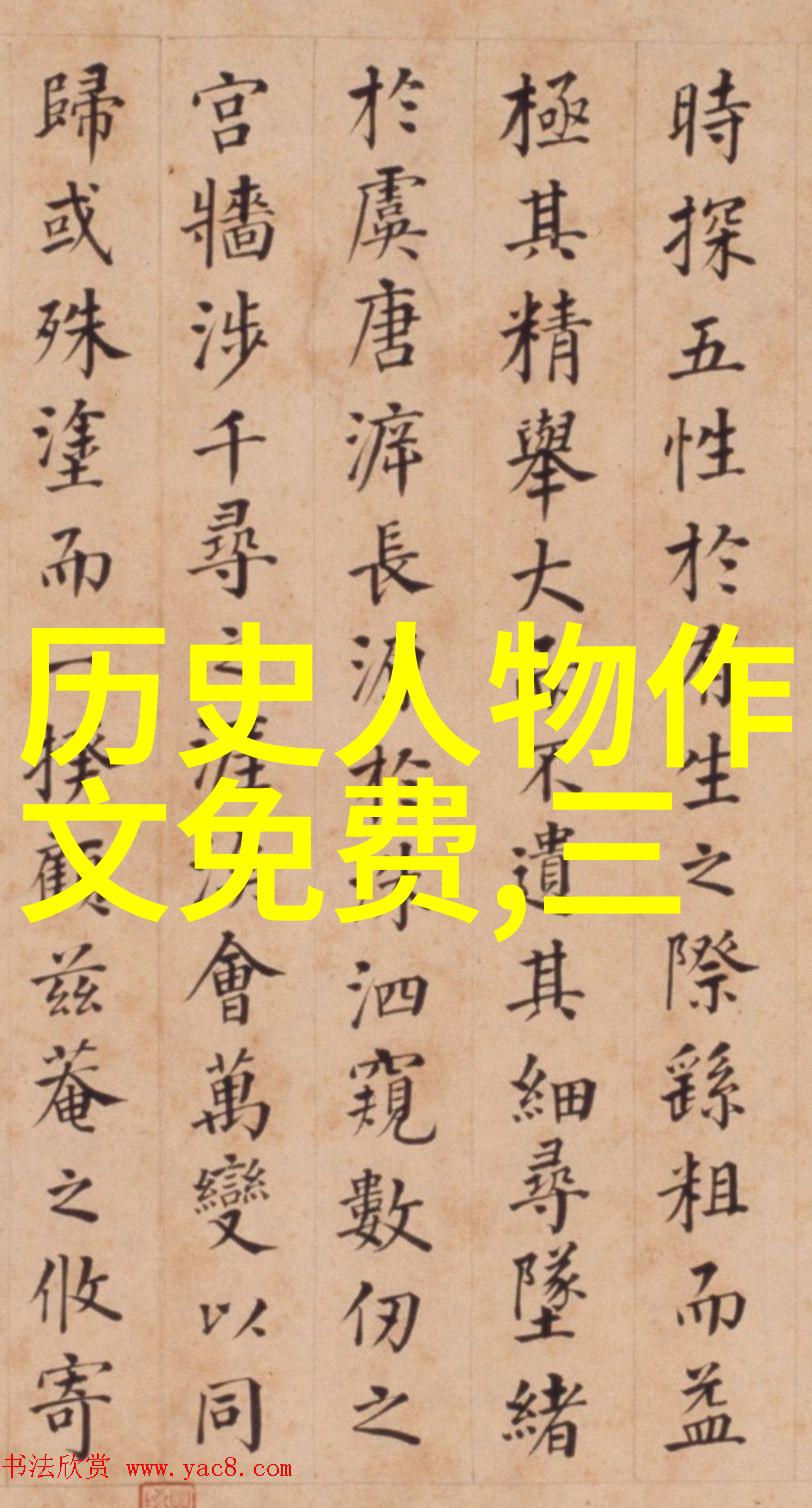 時探五性於有生之際繇粗而益
極其精舉大不遺其細尋墜緒
於虞唐長源於洙泗窺數仞之
宮牆涉千尋之涯涘會萬變以同
歸或殊塗而一揆顧茲菴之攸寄
历史人物作
文免费,三
书法欣赏 www.yac8.com